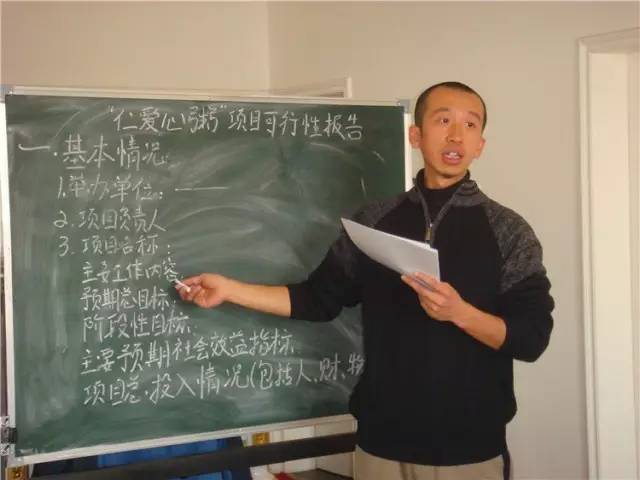 "仁爱心粥"项目可行性报告
一.基本情况:
1.举办单位:——
2.项目负责人
3.项目名称:
主要工作内容
预期总目标:
阶段性目标:
主要预期社会效益指标
项目总投入情况(包括人、财、物